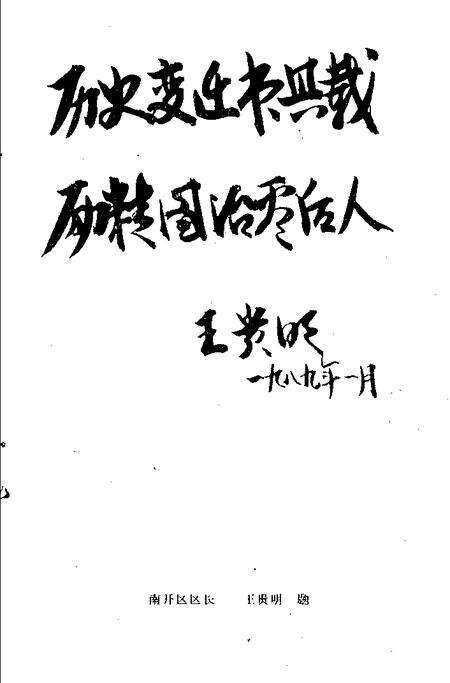 历史变迁书具载
励精图治零后人
王贵明
一九八九年一月
南开区区长 王贵明 题